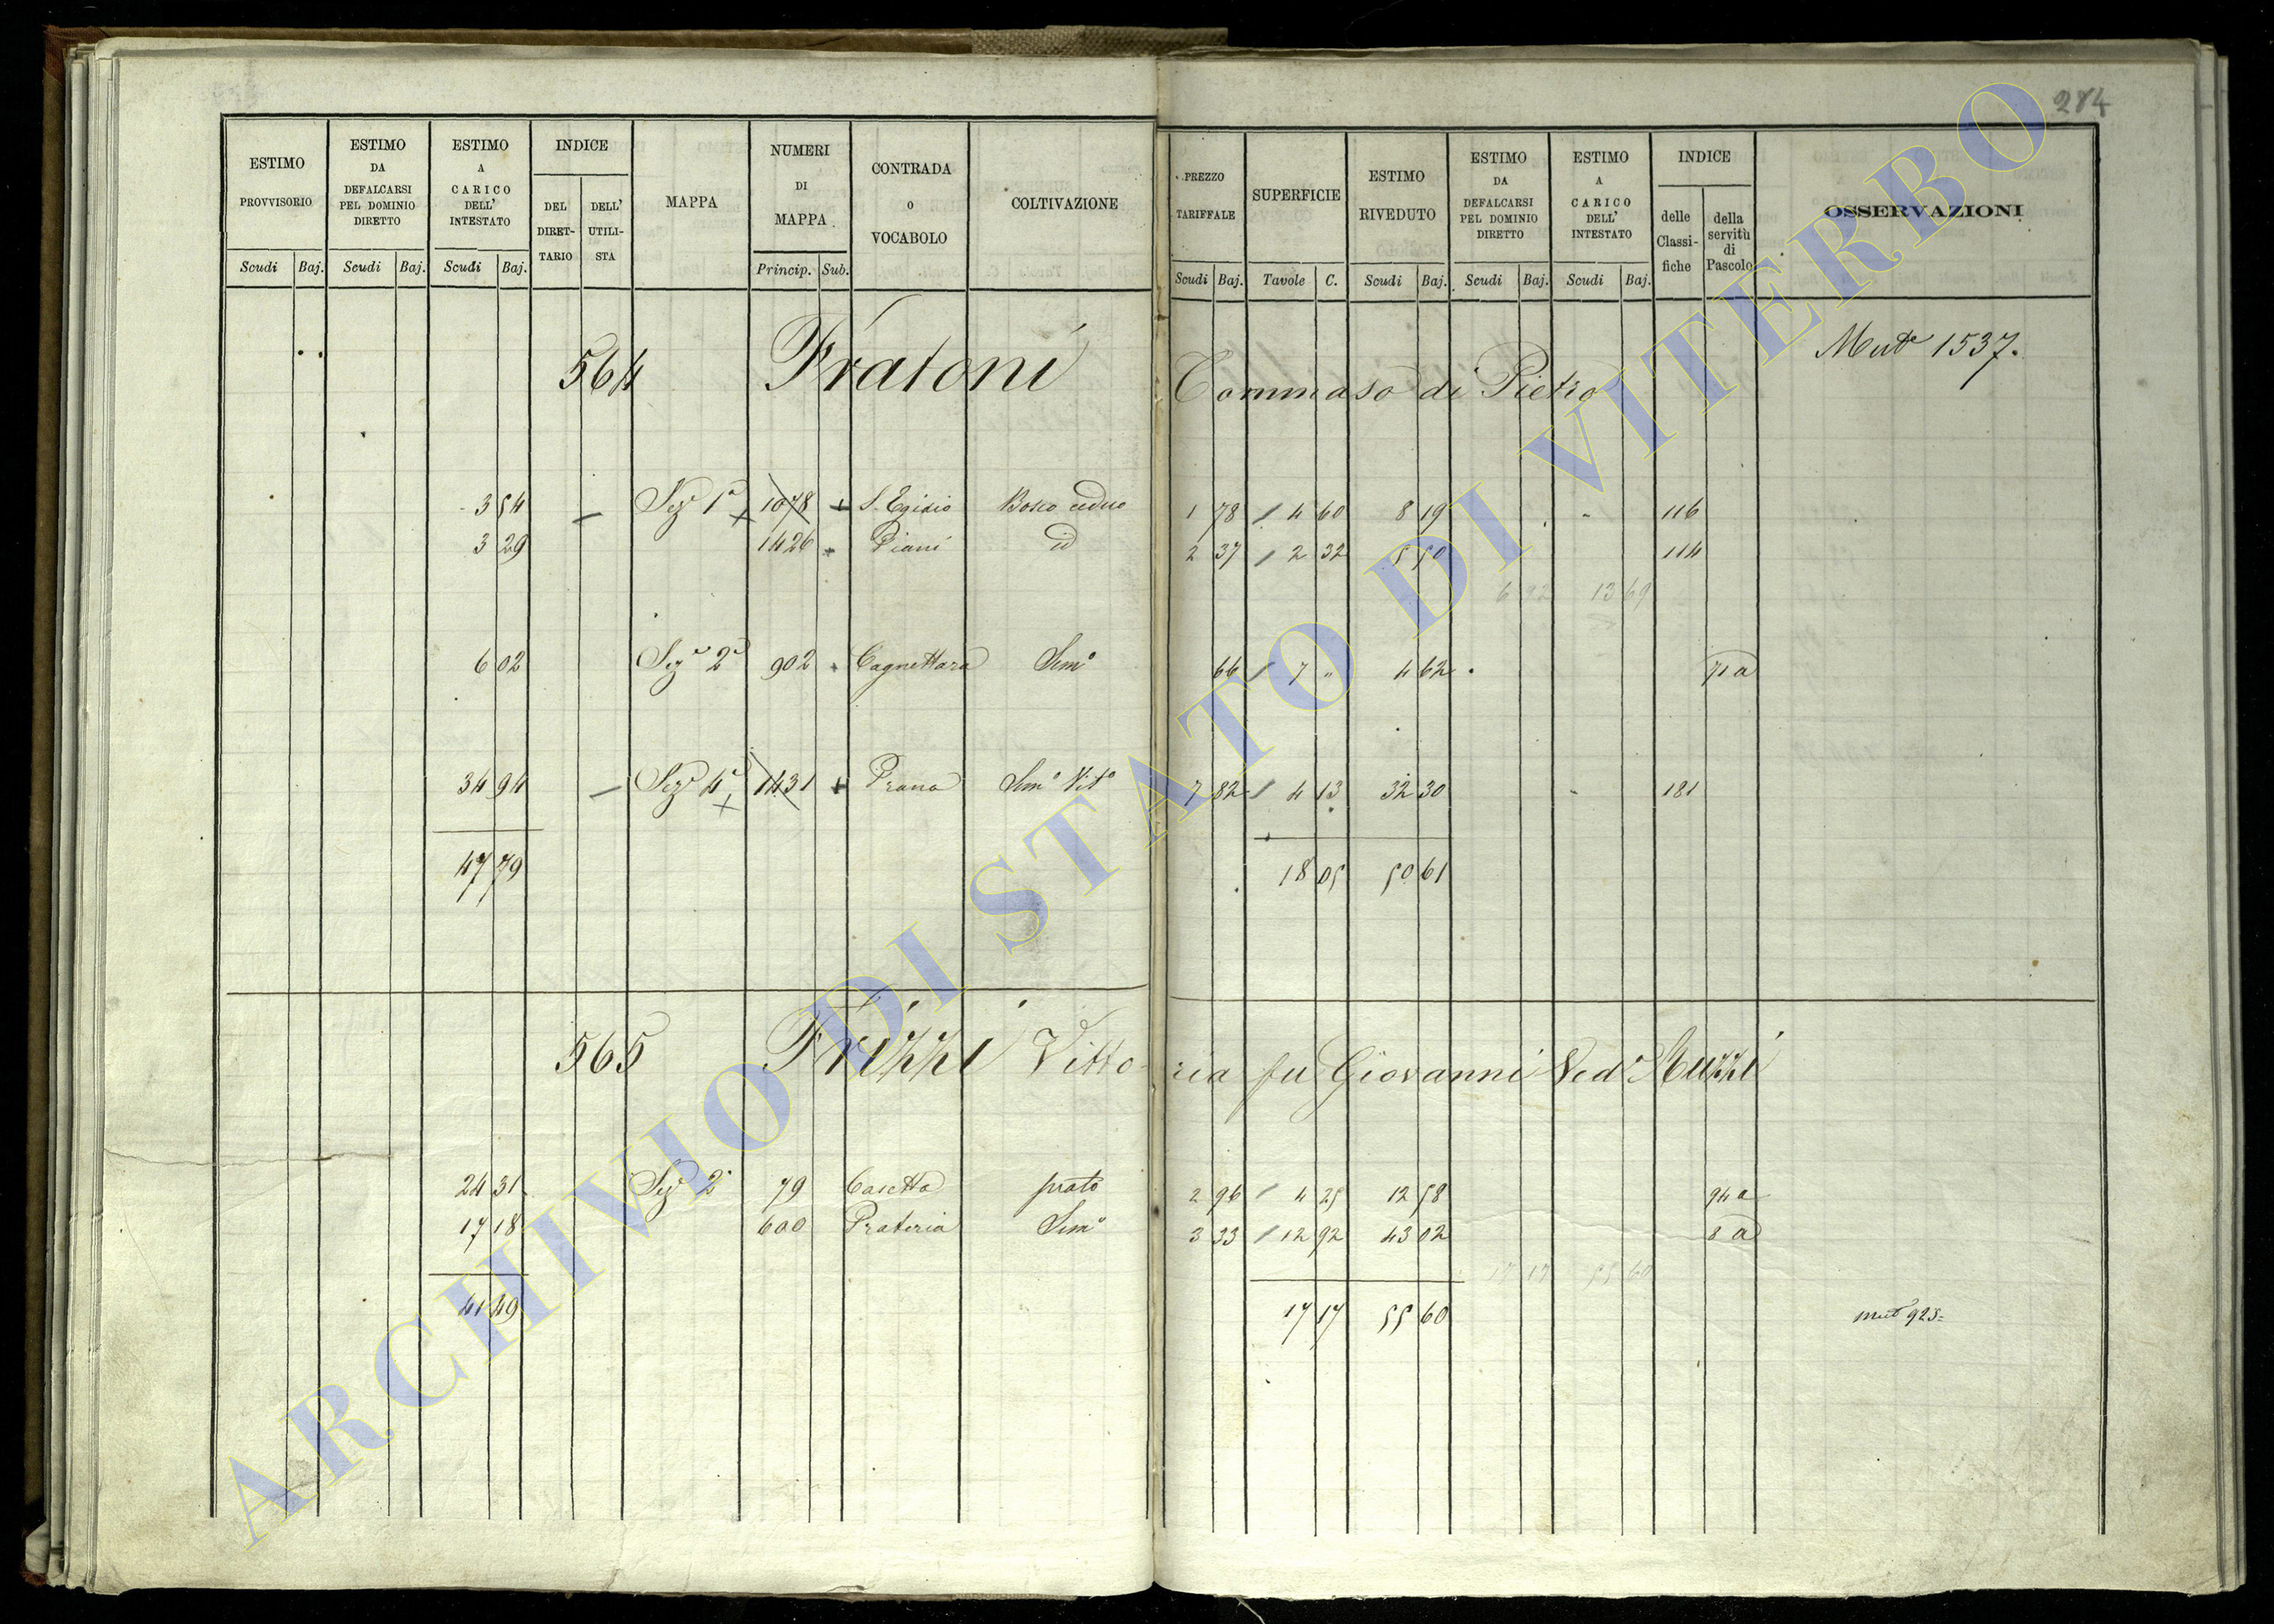 284
ESTIMO PROVVISORIO
ESTIMO DA DEFALCARSI PEL DOMINIO DIRETTO
ESTIMO A CARICO DELL' INTESTATO
INDICE
DEL DIRET-TARIO
DELL' UTILI-STA
MAPPA
NUMERI DI MAPPA
CONTRADA O VOCABOLO
COLTIVAZIONE
PREZZO TARIFFALE
SUPERFICIE
ESTIMO RIVEDUTO
ESTIMO DA DEFALCARSI PEL DOMINIO DIRETTO
ESTIMO A CARICO DELL' INTESTATO
INDICE
delle Classi-fiche
della servitù di Pascolo
OSSERVAZIONI
Scudi Baj. Scudi Baj. Scudi Baj. Princip. Sub.
Scudi Baj. Tavole C. Scudi Baj. Scudi Baj. Scudi Baj.
564 Fratoni Tommaso di Pietro Mutе 1537.
3 54 — Sezᵉ 1ª 1078 + S. Egidio Bosco ceduo 1 78 / 4 60 8 19 116
3 29 1426 Piani id 2 37 / 2 32 5 50 114
6 92 13 69
6 02 Sezᵉ 2ª 902 Cagnettara Semº 66 / 7 " 4 62 71 a
34 94 — Sezᵉ 4ª 1431 + Prana Semº Vitº 7 82 / 4 13 32 30 181
47 79 18 05 50 61
565 Frizzi Vittoria fu Giovanni Vedª Muzzi
24 31 Sezᵉ 2ª 79 Casetta prato 2 96 / 4 25 12 58 94 a
17 18 600 Prateria Semº 3 33 / 12 92 43 02 8 a
17 17 55 60
41 49 17 17 55 60 mutª 925
ARCHIVIO DI STATO DI VITERBO